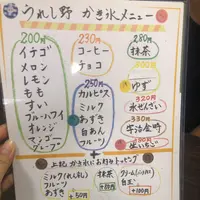 うれし野 かき氷メニュー
200円
イチゴ
メロン
レモン
もも
すい
ブルーハワイ
オレンジ
ブルーツ
230円
コーヒー
チョコ
250円
カルピス
ミルク
あずき
白あん
フルーツ
280円
抹茶
300円
ゆず
320円
氷ぜんざい
330円
宇治金時
上記かき氷にお好みトッピング
ミルク(れん乳)
フルーツ
あずき
+50円
抹茶
+80円
クリーム
白玉
+100円